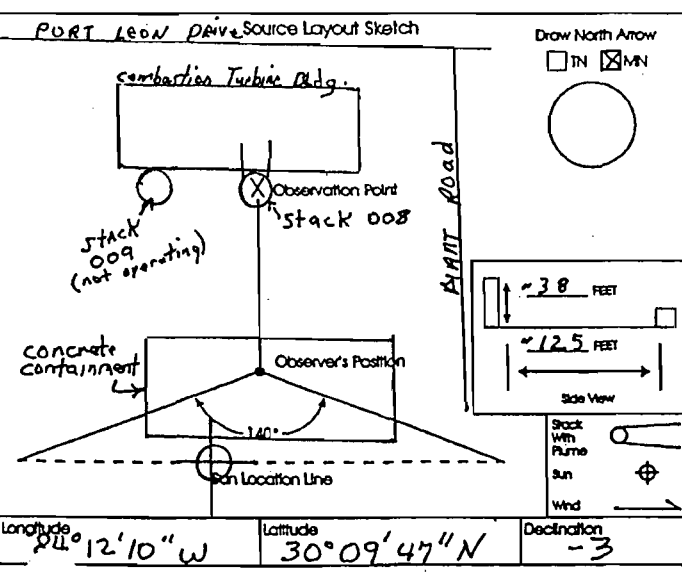 PORT LEON DRIVE Source Layout Sketch
Draw North Arrow
TN MN
Combastion Turbine Bldg.
Observation Point
Stack 008
Stack
009
(not operating)
PLANT Road
~38 FEET
~125 FEET
Side View
concrete
containment
Observer's Position
140°
Sun Location Line
Stack
With
Plume
Sun
Wind
Longitude
84° 12' 10" W
Latitude
30° 09' 47" N
Declination
-3